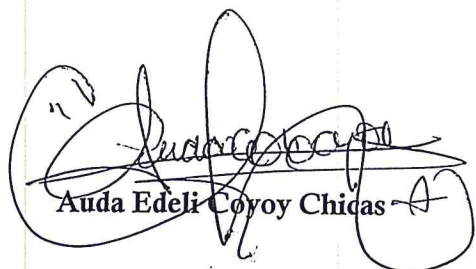 Auda Edeli Coyoy Chicas